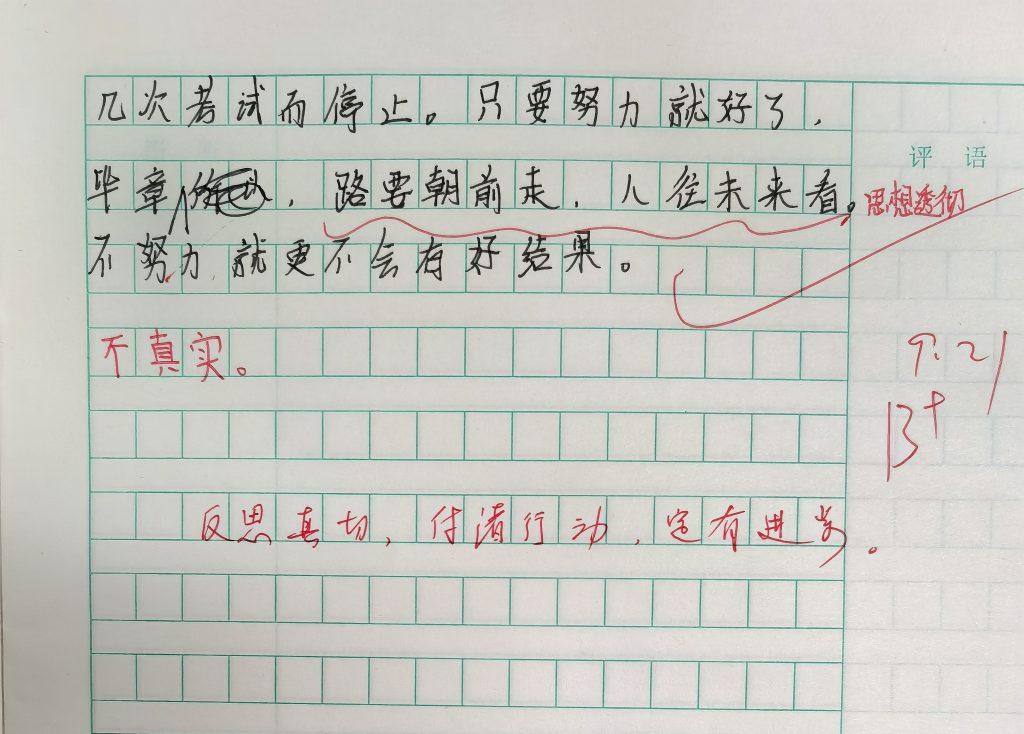 几次考试而停止。只要努力就好了，
毕章，路要朝前走，人往未来看。
不努力就更不会有好结果。
不真实。
反思真切，付渚行动，定有进步。
评语
思想透彻
9.21
B+